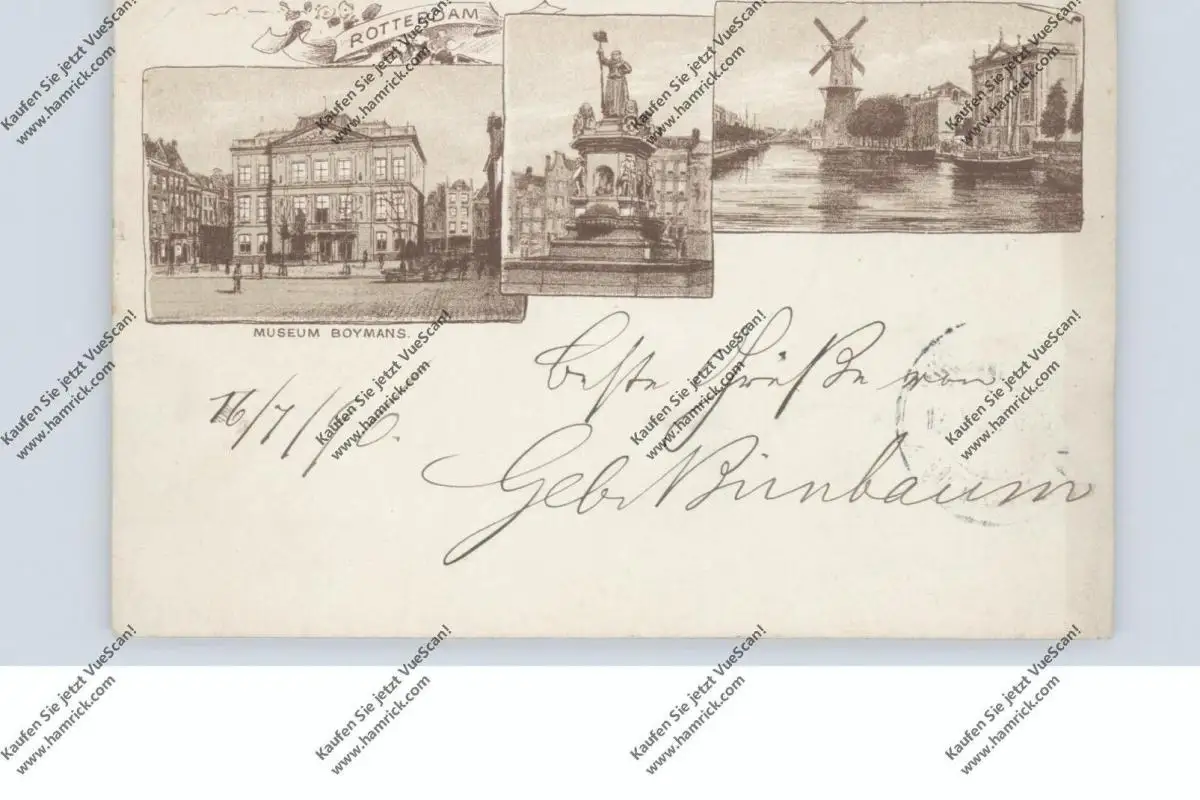 ROTTERDAM
MUSEUM BOYMANS.
Beste Grüße von
16/7/96.
Gebr Birnbaum
Kaufen Sie jetzt VueScan!
www.hamrick.com
Kaufen Sie jetzt VueScan!
www.hamrick.com
Kaufen Sie jetzt VueScan!
www.hamrick.com
Kaufen Sie jetzt VueScan!
www.hamrick.com
Kaufen Sie jetzt VueScan!
www.hamrick.com
Kaufen Sie jetzt VueScan!
www.hamrick.com
Kaufen Sie jetzt VueScan!
www.hamrick.com
Kaufen Sie jetzt VueScan!
www.hamrick.com
Kaufen Sie jetzt VueScan!
www.hamrick.com
Kaufen Sie jetzt VueScan!
www.hamrick.com
Kaufen Sie jetzt VueScan!
www.hamrick.com
Kaufen Sie jetzt VueScan!
www.hamrick.com